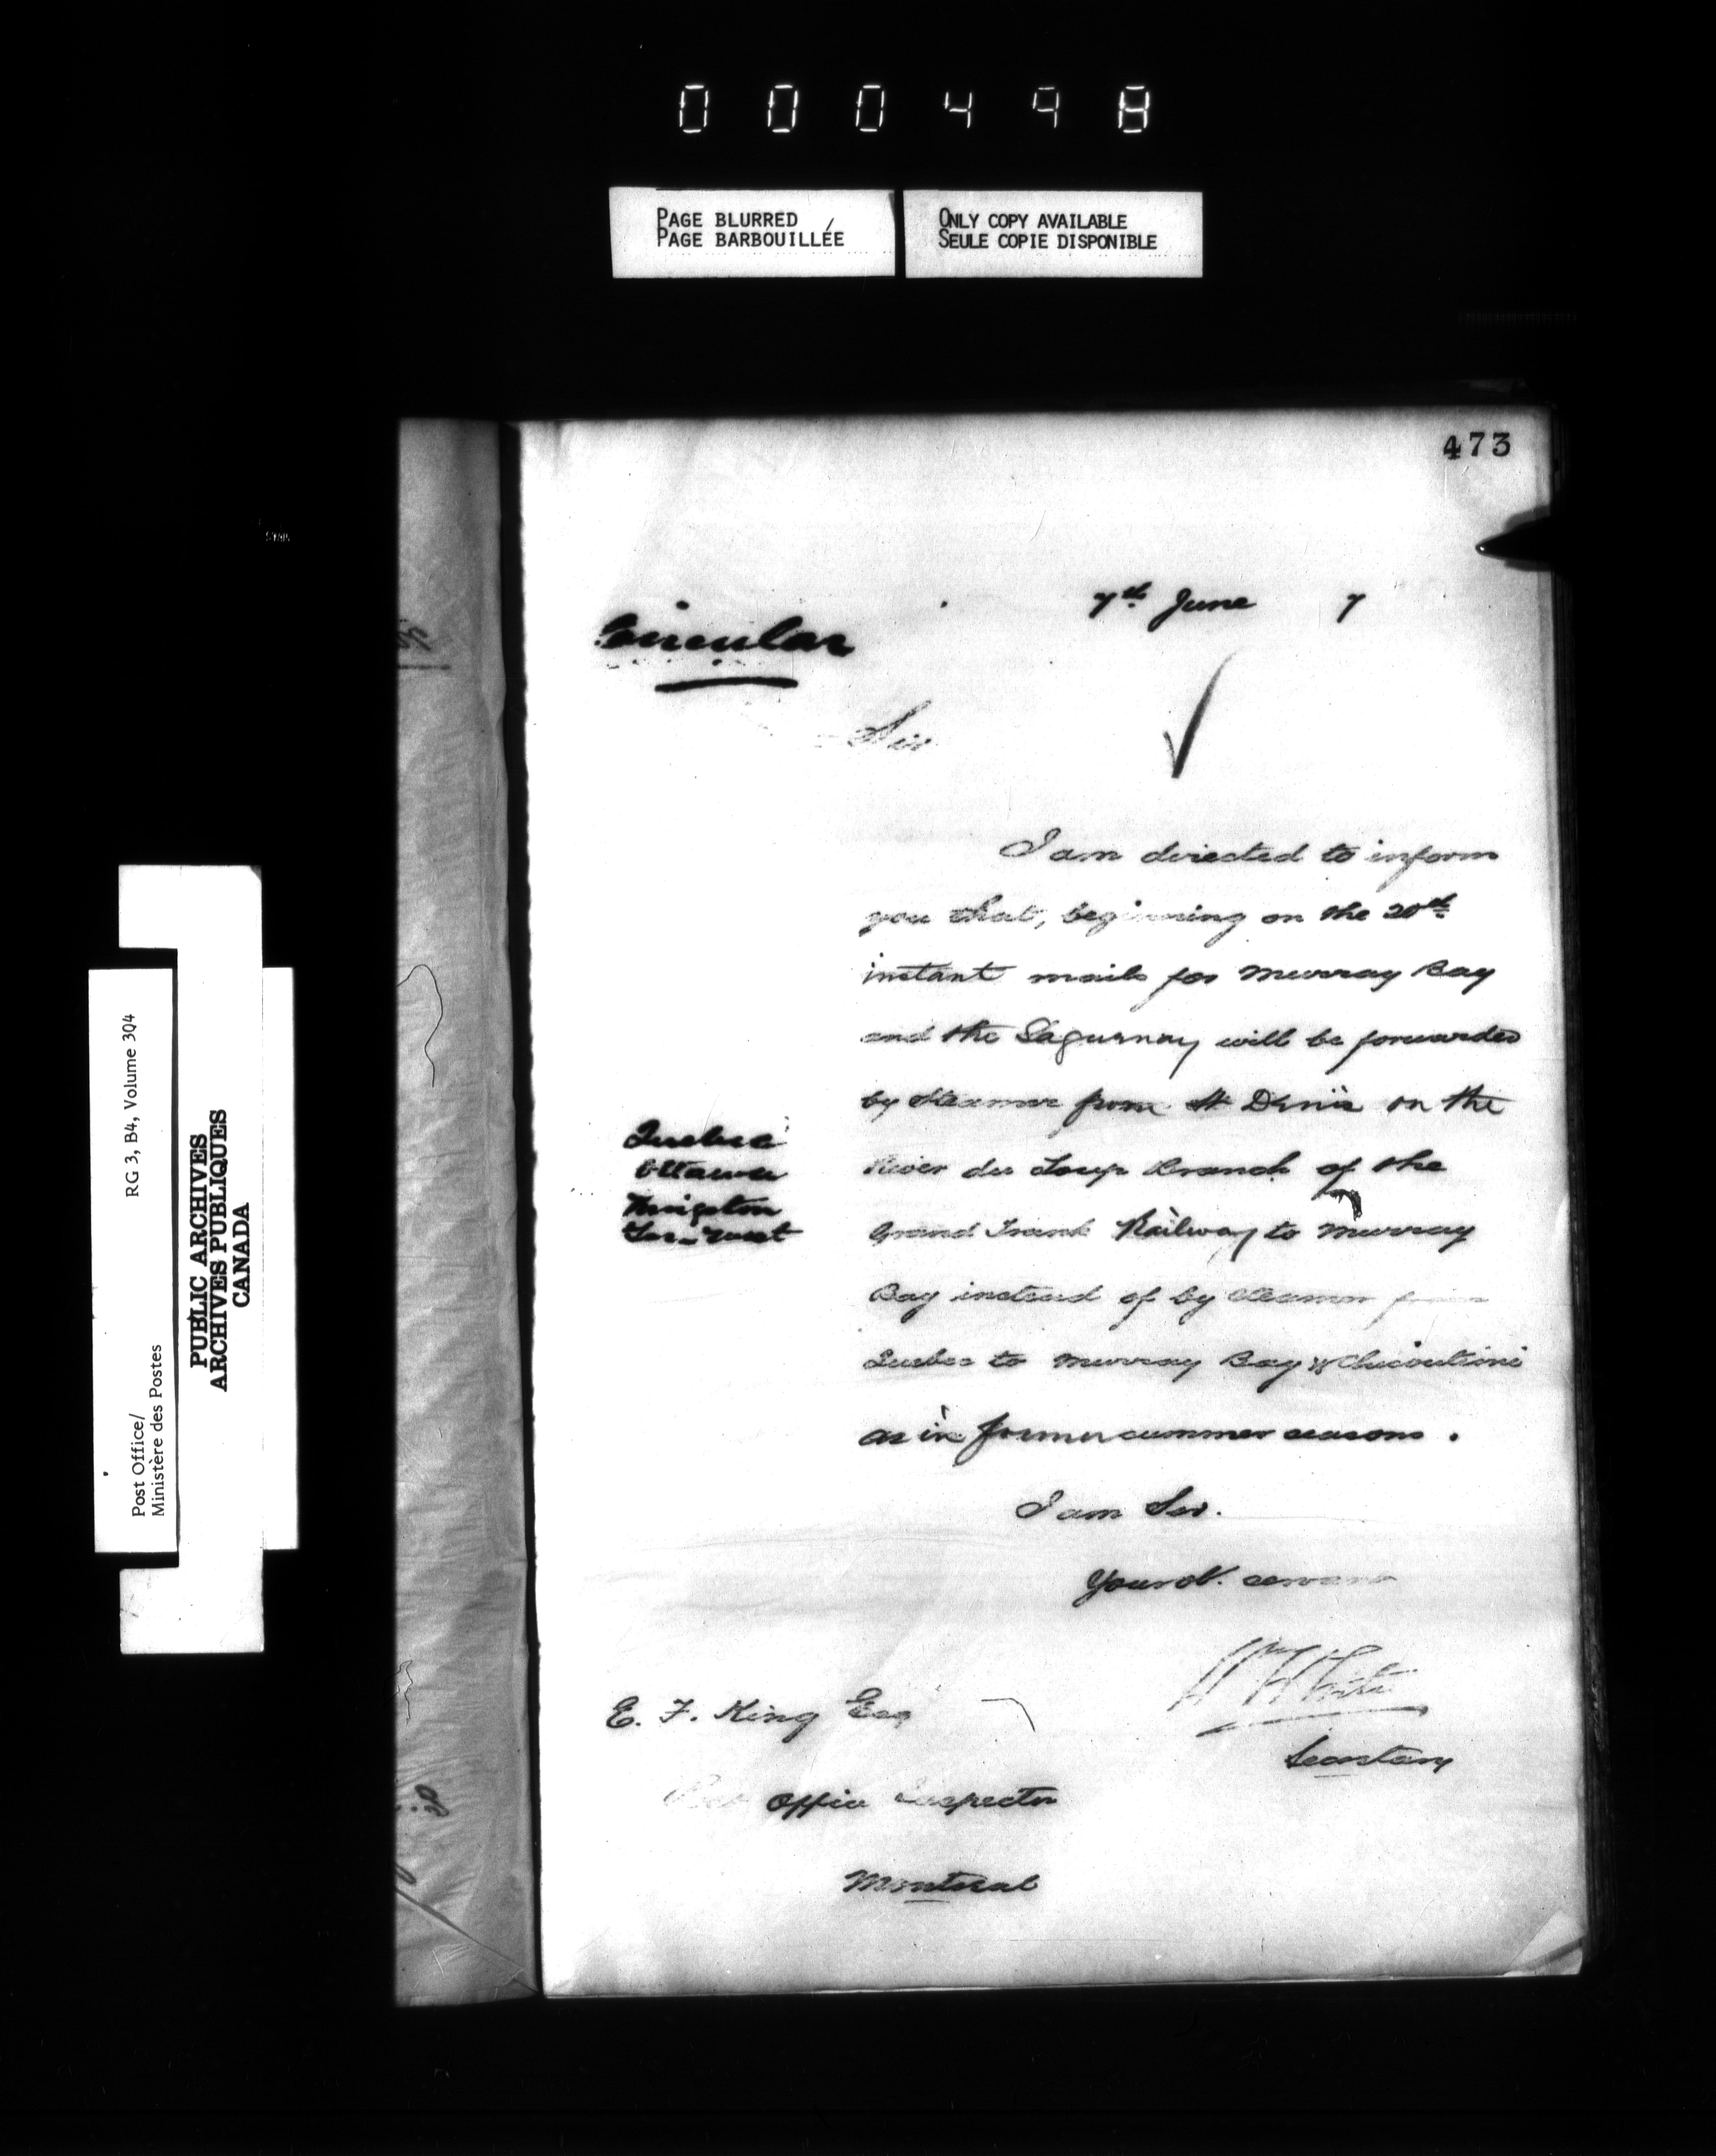 000498
PAGE BLURRED
PAGE BARBOUILLÉE
ONLY COPY AVAILABLE
SEULE COPIE DISPONIBLE
473
7th June 7
Circular
Sir
I am directed to inform
you that, beginning on the 20th
instant mails for Murray Bay
and the Saguenay will be forwarded
by Steamer from St Denis on the
River du Loup Branch of the
Grand Trunk Railway to Murray
Bay instead of by Steamer from
Quebec to Murray Bay & Chicoutimi
as in former summer seasons.
Quebec
Ottawa
Kingston
Tor-
I am Sir.
Your ob. servant
W H Griffin
Secretary
E. F. King Esq
Post Office Inspector
Montreal
RG 3, B4, Volume 304
Post Office/
Ministère des Postes
PUBLIC ARCHIVES
ARCHIVES PUBLIQUES
CANADA